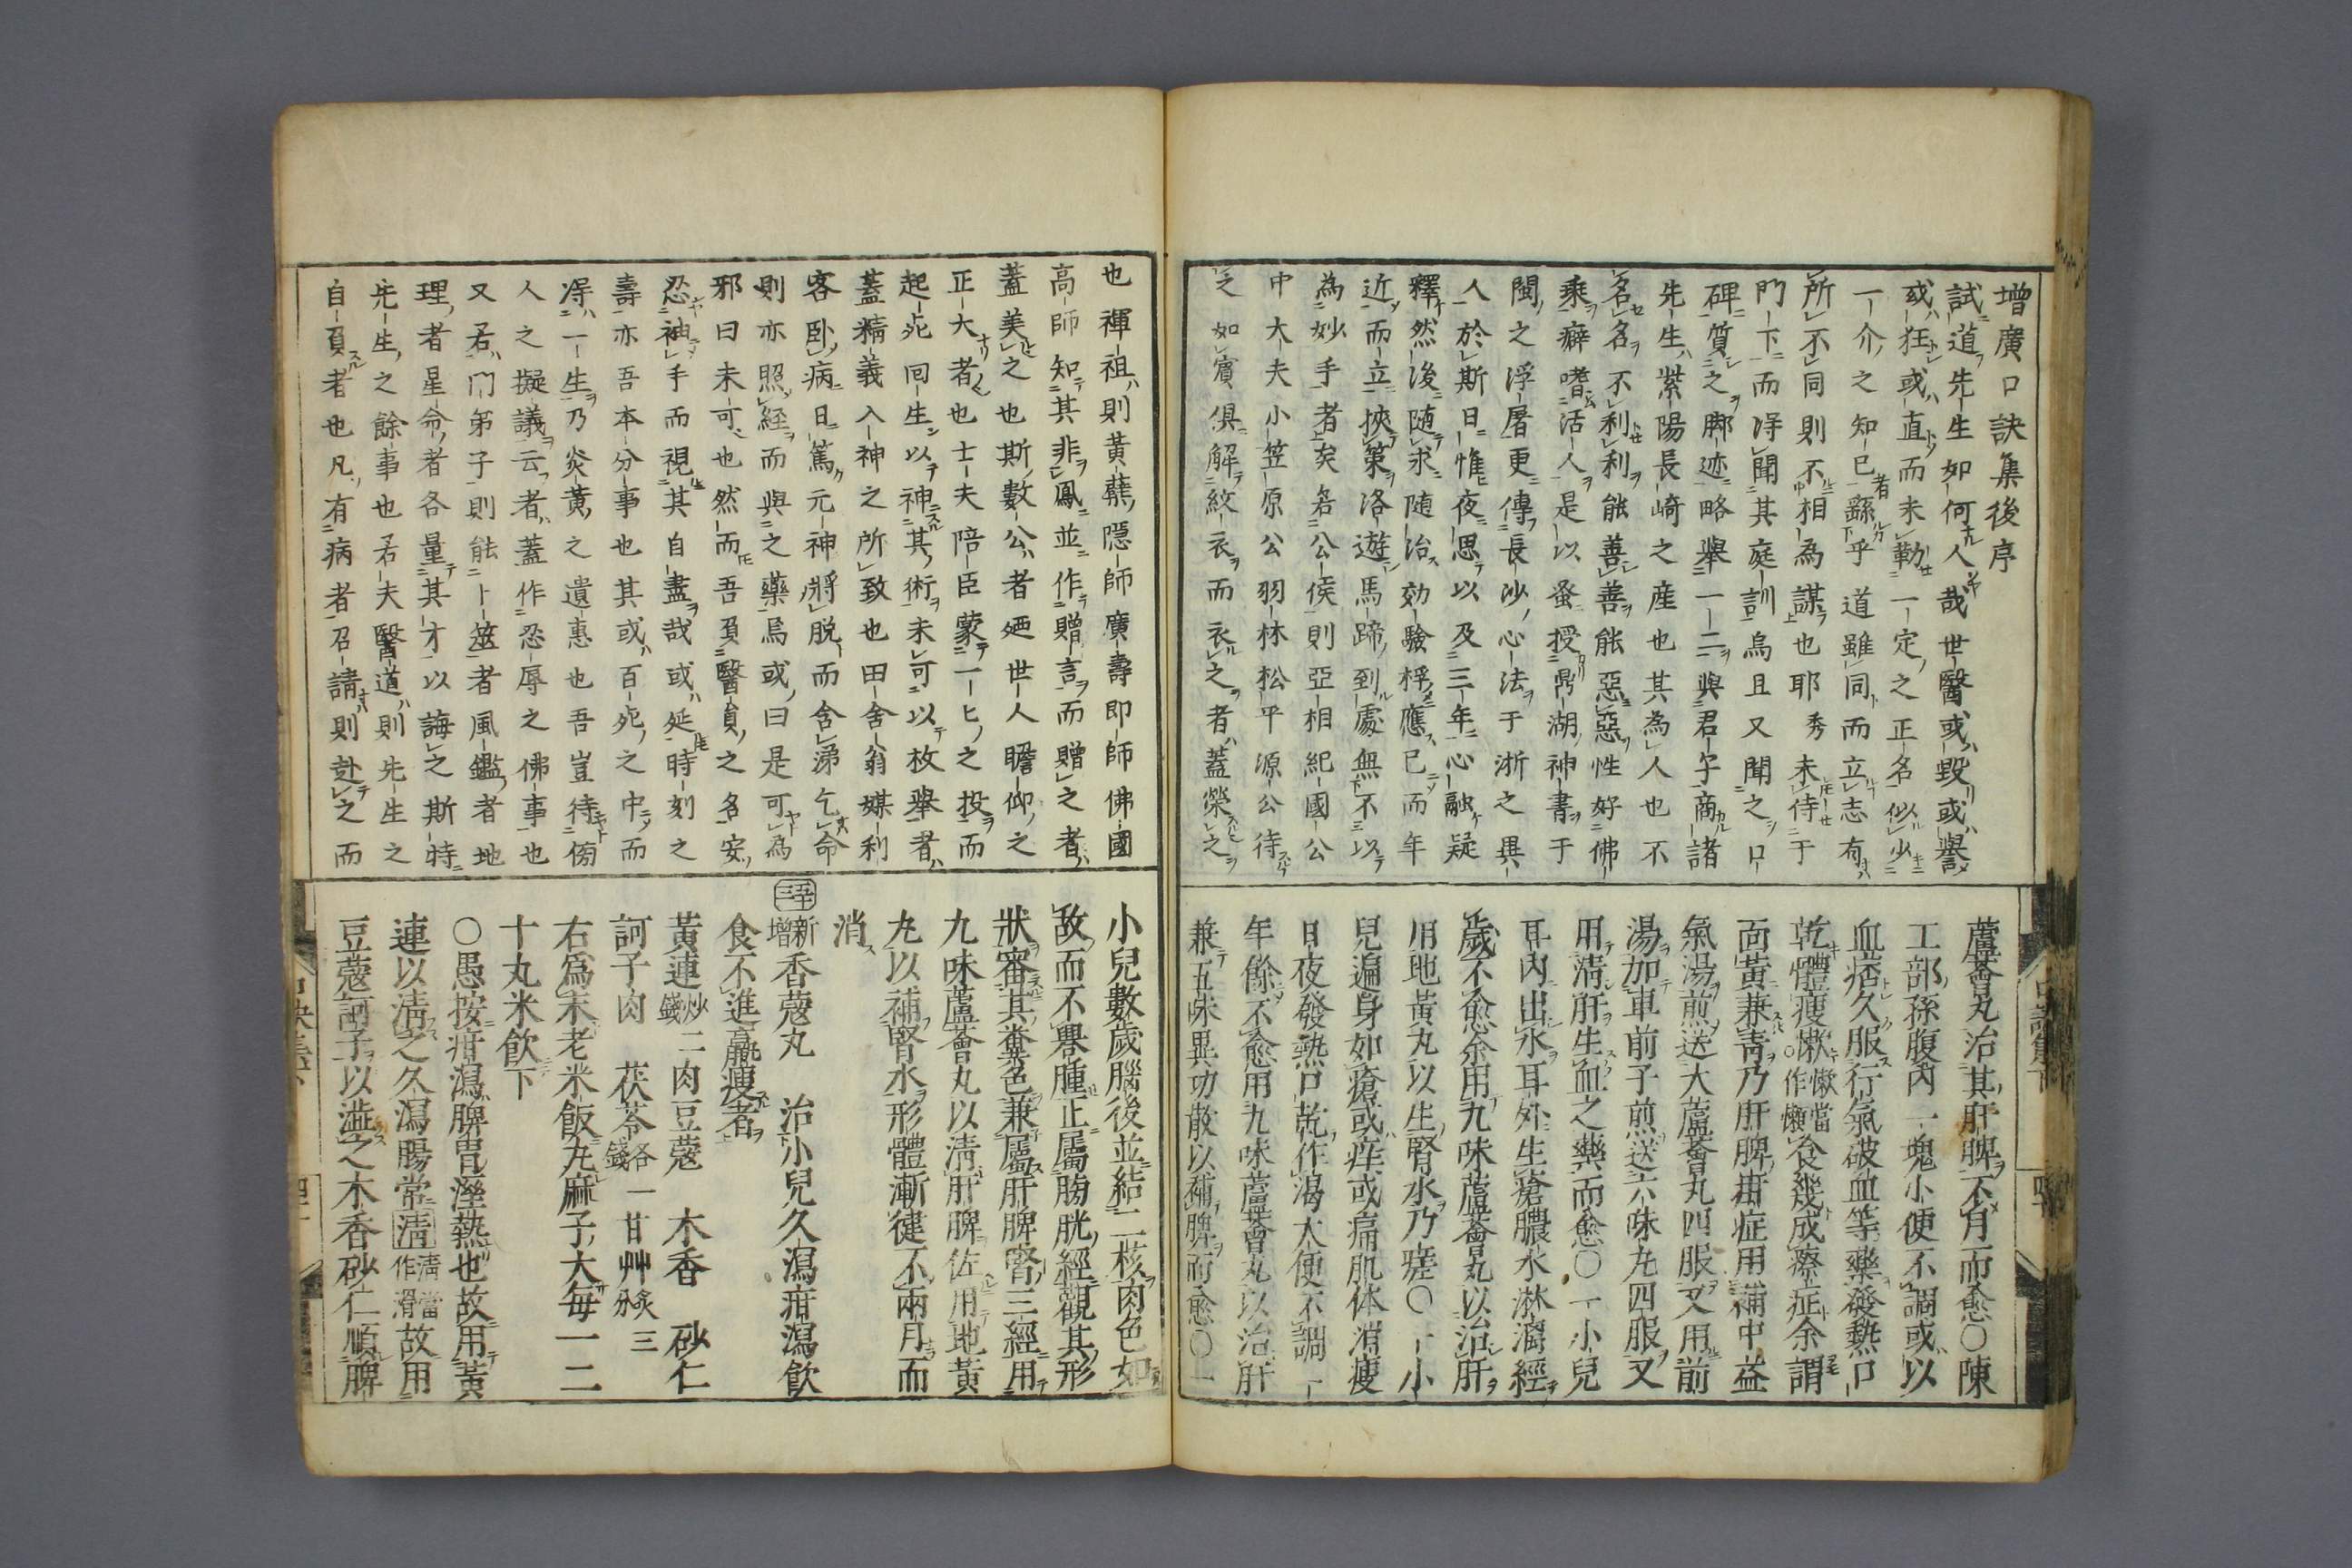 增廣口訣集後序
試道先生如何人哉世醫或毀或譽
或狂或直而未勒一定之正名似少
一介之知已繇乎道雖同而立志有
所不同則不相為謀也耶秀未侍于
門下而得聞其庭訓烏且又聞之口
碑質之脚迹略舉一二與君子商諸
先生紫陽長崎之産也其為人也不
名名不利利能善善能惡惡性好佛
乘癖嗜活人是以蚤授鼎湖神書于
閩之浮屠更傳長沙心法于浙之異
人於斯日惟夜思以及三年心融疑
釋然後随求随治効驗桴應已而年
近而立挾策洛遊馬蹄到處無不以
為妙手者矣若公侯則亞相紀國公
中大夫小笠原公羽林松平源公待
之如賓俱解紋衣而衣之者蓋榮之
蘆薈丸治其肝脾不月而愈○陳
工部孫腹內一塊小便不調或以
血痞久服行氣破血等藥發熱口
乾體瘦懶懶當作懶食幾成瘵症余謂
面黃兼青乃肝脾疳症用補中益
氣湯煎送大蘆薈丸四服又用前
湯加車前子煎送六味丸四服又
用清肝生血之藥而愈○一小兒
耳內出水耳外生瘡膿水淋漓經
歲不愈余用九味蘆薈丸以治肝
用地黃丸以生腎水乃瘥○一小
兒遍身如瘡或痒或痛肌体消瘦
日夜發熱口乾作渴大便不調一
年餘不愈用九味蘆薈丸以治肝
兼五味異功散以補脾而愈○一
也禪祖則黃蘗隱師廣壽即師佛國
高師知其非鳳並作贈言而贈之者
蓋美之也斯數公者廼世人瞻仰之
正大者也士夫陪臣蒙一匕之投而
起死回生以神其術未可以枚舉者
蓋精義入神之所致也田舍翁媒利
客臥病日篤元神將脱而含涕乞命
則亦照経而與之藥焉或曰是可為
邪曰未可也然而吾頂醫負之名安
忍袖手而視其自盡哉或延時刻之
壽亦吾本分事也其或百死之中而
得一生乃炎黃之遺惠也吾豈待傍
人之擬議云者蓋作忍辱之佛事也
又若門弟子則能卜筮者風鑑者地
理者星命者各量其才以誨之斯特
先生之餘事也若夫醫道則先生之
自負者也凡有病者召請則赴之而
小兒數歲腦後並結二核肉色如
故而不畏腫正屬膀胱經觀其形
狀審其糞色兼屬肝脾腎三經用
九味蘆薈丸以清肝脾佐用地黃
丸以補腎水形體漸健不兩月而
消
新增香蔻丸 治小兒久瀉疳瀉飲
食不進羸瘦者
黃連炒二錢肉豆蔻 木香 砂仁
訶子肉 茯苓各一錢甘艸炙三分
右爲末老米飯丸麻子大每一二
十丸米飲下
○愚按疳瀉脾胃溼熱也故用黃
連以清之久瀉腸常清清當作滑故用
豆蔻訶子以澁之木香砂仁順脾